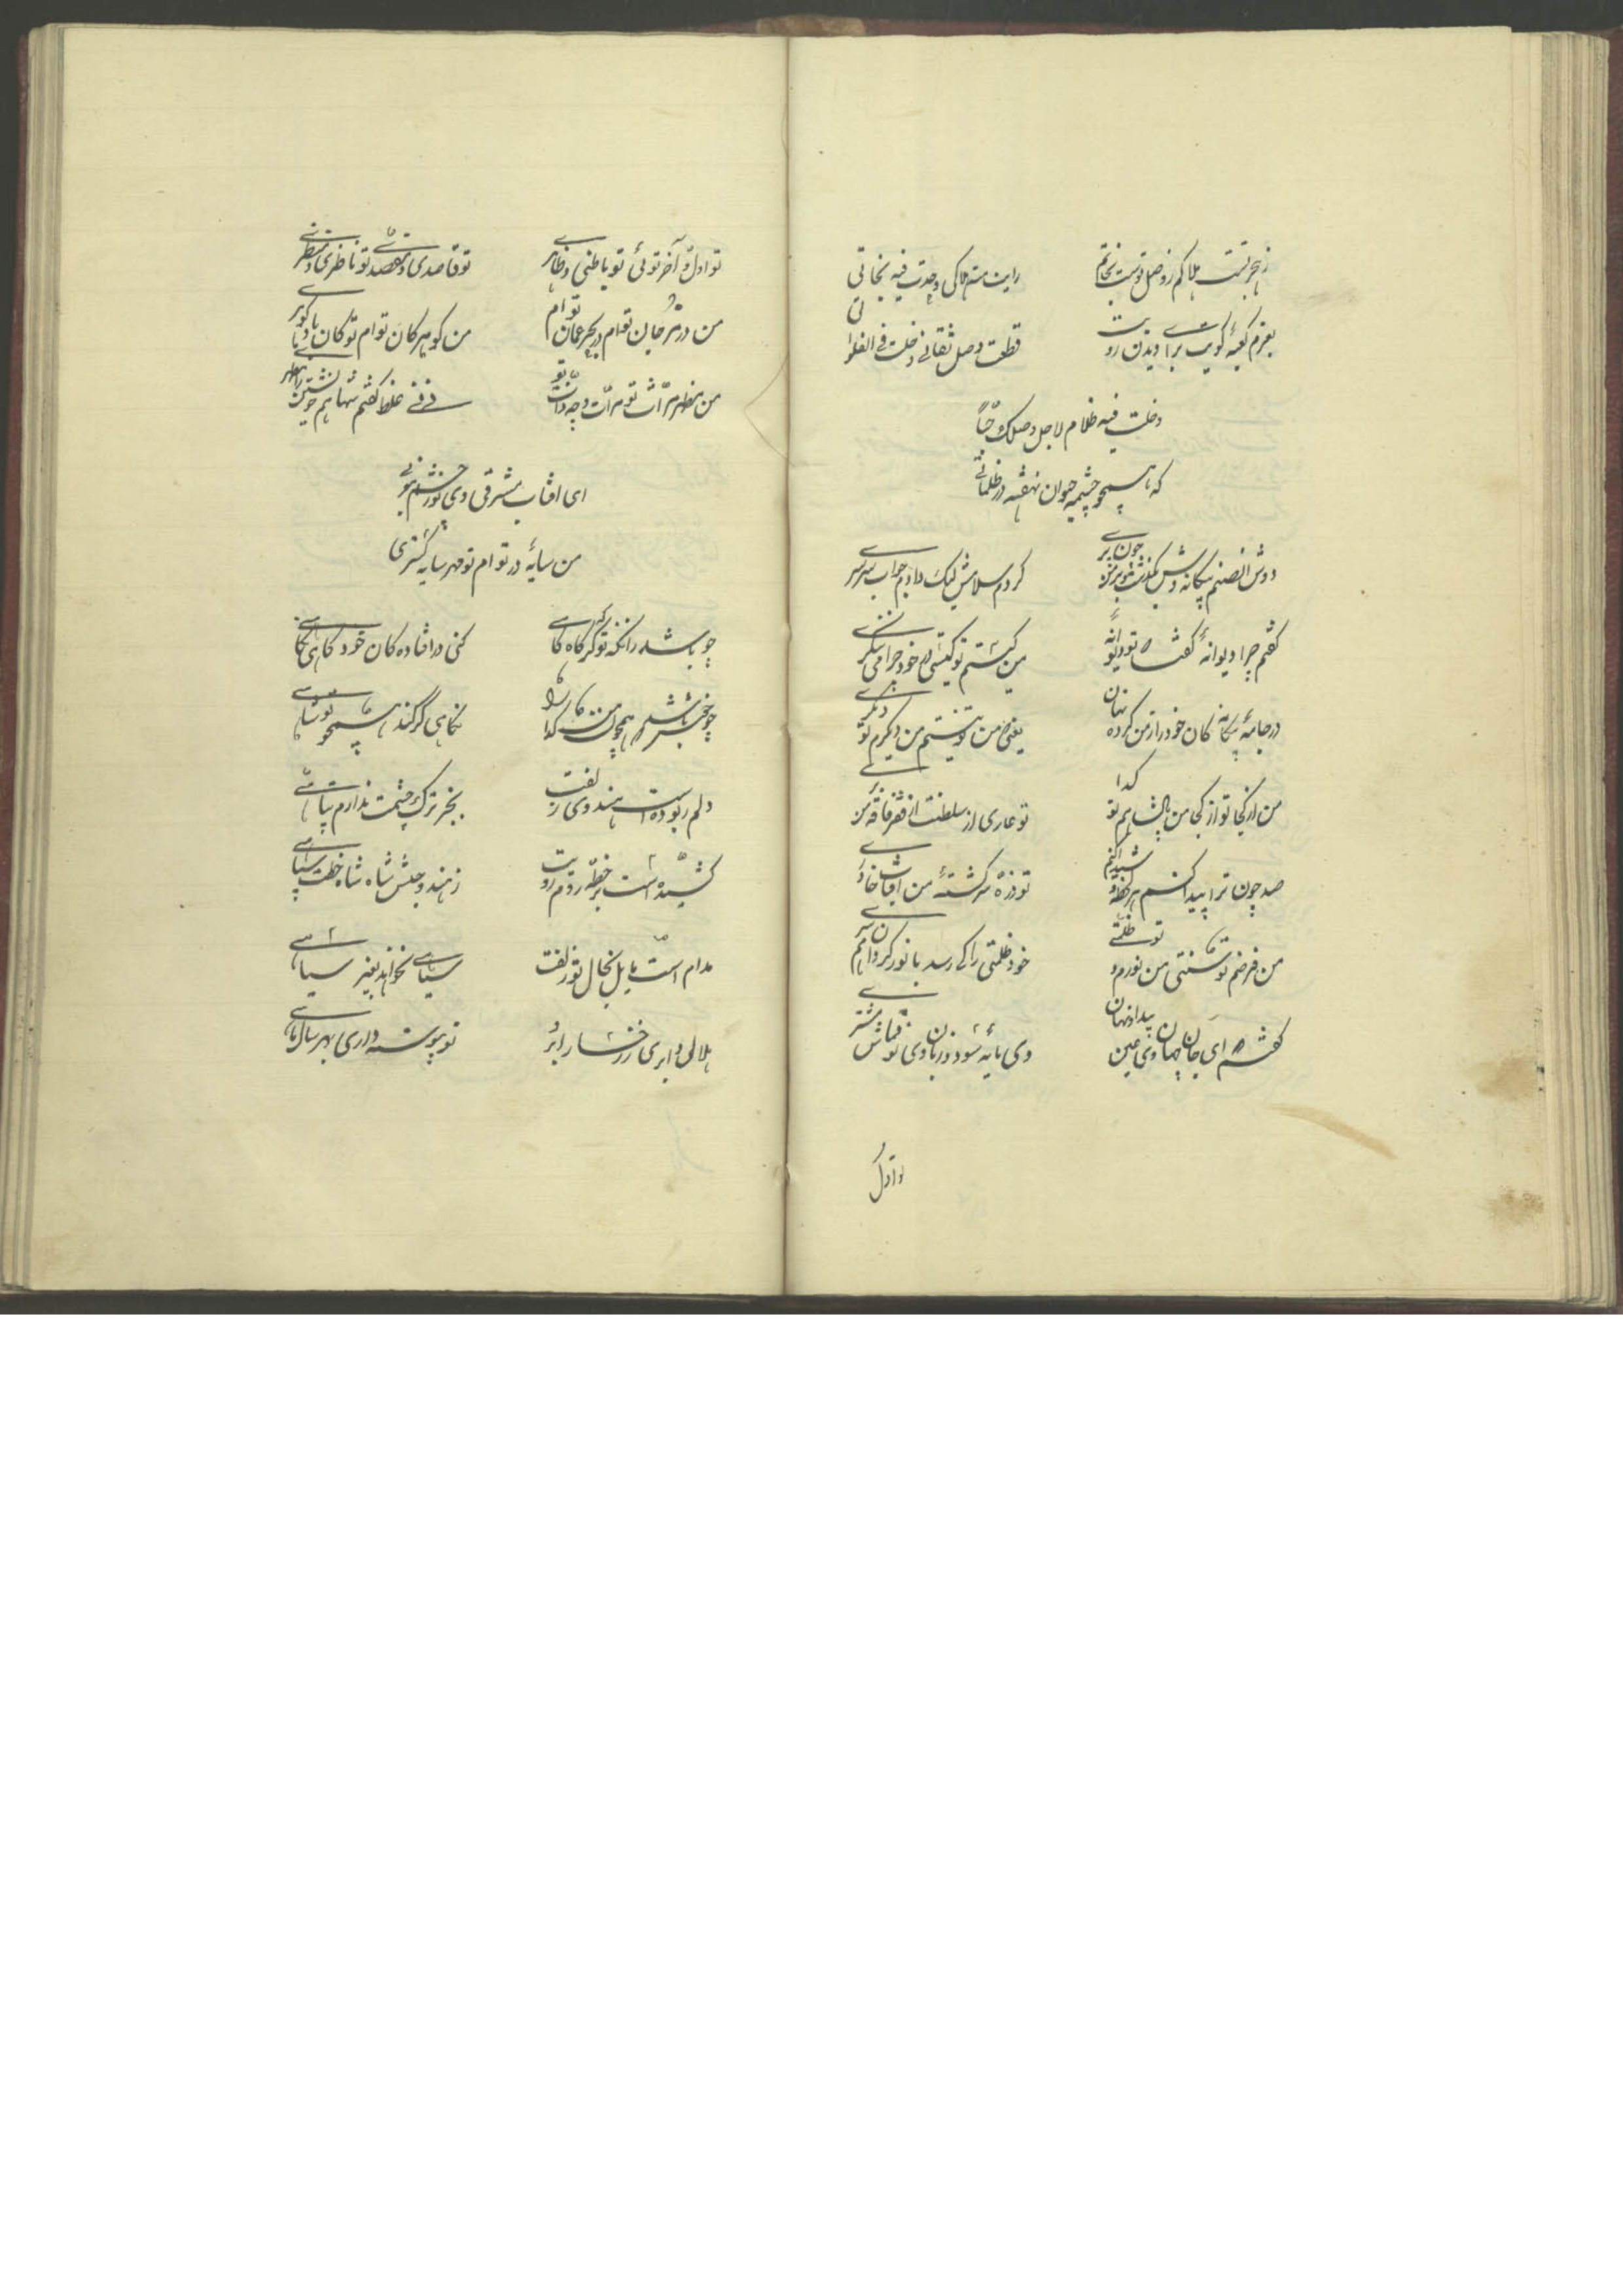 ز هجر تست هلاکم ز وصل تست نجاتم
رایت منه هلاکی وجدت فیه نجاتی
بعزم کعبهٔ کویت برای دیدن رویت
قطعت وصل ثقاتی دخلت فی الفلواتی
دخلت فیه ظلام لاجل وصلک حبّاً
که همچو چشمهٔ حیوان نهفته در ظلماتی
دوش آن صنم بیگانه وش بگذشت بر من چون پری
کردم سلامش لیک داد جواب سرسری
گفتم چرا دیوانهٔ گفتا تو دیوانهٔ
من کیستم تو کیستی خود چرا می ننگری
در جامهٔ بیگانه کان خود را ز من کرده نهان
یعنی من تو نیستم من دیگرم تو دیگری
من از کجا تو از کجا من پادشاهم تو گدا
تو عاری از سلطنت از فقر و فاقه من بری
صد چون ترا پیدا کنم هر لحظه و شیدا کنم
تو ذرهٔ سرگشتهٔ من آفتاب خاوری
من فرضم تو سنتی من نورم و تو ظلمتی
خود ظلمتی را کی رسد با نور کردن همسری
گفتم که ای جان جهان وی عین پیدا و نهان
وی مایهٔ سود و زیان وی تو قماش مشتری
تو اول
تو اول و آخر توئی تو باطنی و ظاهری
تو قاصدی و مقصدی تو ناظری و منظری
من در مرجان توام در بحر عمان توام
من گوهر کان توام تو کان و یا گوهری
من مظهر مرآت تو مرآت وجه ذات تو
نی نی غلط گفتم شها هم خویشتن را مظهری
ای آفتاب مشرقی وی نور چشم
من سایهٔ در توام تو مهر سایه گستری
چو باشد زانکه تو گر گاه گاهی
کنی در افتاده کان خود نگاهی
چو خنجر باشد همچون من گدا را
نگاهی گر کند همچو تو شاهی
دلم ربوده است هندوی زلفت
بجز ترک چشمت ندارم پناهی
کشیده است بر خطهٔ روم رویت
ز هند و حبش شاه خطت سپاهی
مدام است مایل بخال تو زلفت
سیاهی نخواهد بغیر سیاهی
هلالی و ابروی رخسار ابرو
تو پیوسته داری بهر سال ماهی